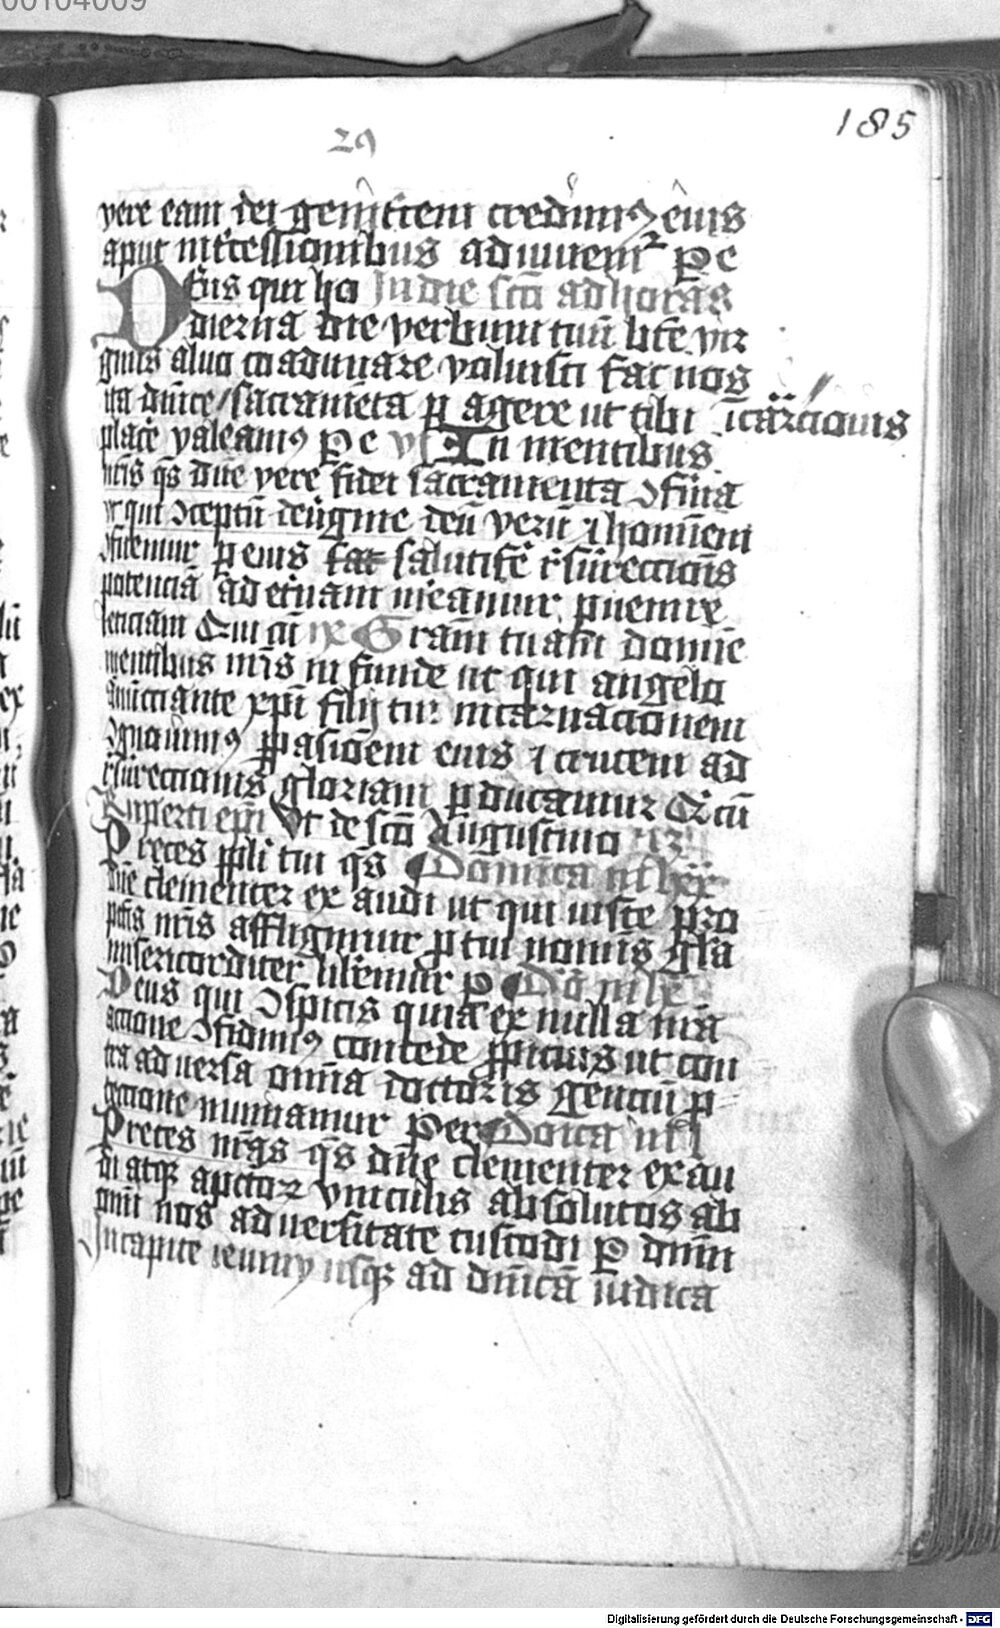 00104009
185
29
vere eam dei genitricem credimus eius
aput intercessionibus adiuuemur Per
Deus qui ho In die sancto ad horas
dierna die verbum tuum beate vir
ginis aluo coadunare voluisti fac nos
ita dominice sacramenta peragere ut tibi incarcionis
placere valeamus Per vs In mentibus
nostris quesumus domine vere fidei sacramenta confirma
ut qui conceptum de uirgine deum verum et hominem
confitemur per eius salutifere resurrectionis
potenciam ad eternam mereamur peruenire
leticiam Qui cum Graciam tuam domine
mentibus nostris infunde ut qui angelo
annucciante xpisti filij tui incarnacionem
cognouimus per passionem eius et crucem ad
resurrectionis gloriam perducamur Qui cum
Ruperti episcopi Vt de sancto Augustino
Preces populi tui quesumus Dominica in lxx
domine clementer exaudi ut qui iuste pro
peccatis nostris affligimur pro tui nominis gloria
misericorditer liberemur per Do in lx
Deus qui conspicis quia ex nulla nostra
actione confidimus concede propicius ut con
tra aduersa omnia doctoris gencium pro
tectione muniamur Per Doica in l
Preces nostras quesumus domine clementer exau
di atque a peccatorum vinculis absolutos ab
omni nos aduersitate custodi Per dominum
In capite ieiunij usque ad dominicam iudica
Digitalisierung gefördert durch die Deutsche Forschungsgemeinschaft - DFG